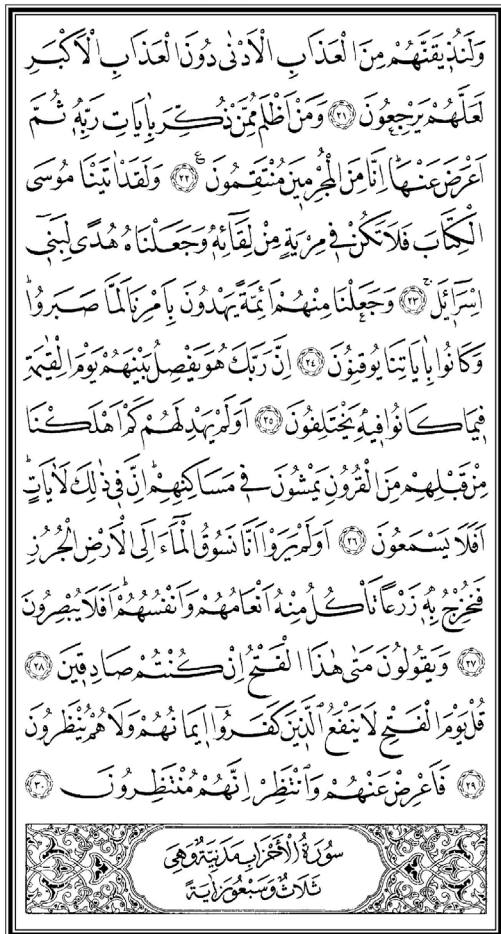 وَلَنُذ۪يقَنَّهُمْ مِنَ الْعَذَابِ الْاَدْنٰى دُونَ الْعَذَابِ الْاَكْبَرِ
لَعَلَّهُمْ يَرْجِعُونَ ﴿٢١﴾ وَمَنْ اَظْلَمُ مِمَّنْ ذُكِّرَ بِاٰيَاتِ رَبِّه۪ ثُمَّ
اَعْرَضَ عَنْهَاۜ اِنَّا مِنَ الْمُجْرِم۪ينَ مُنْتَقِمُونَ۟ ﴿٢٢﴾ وَلَقَدْ اٰتَيْنَا مُوسَى
الْكِتَابَ فَلَا تَكُنْ ف۪ي مِرْيَةٍ مِنْ لِقَٓائِه۪ وَجَعَلْنَاهُ هُدًى لِبَن۪ٓي
اِسْرَٓائ۪لَۚ ﴿٢٣﴾ وَجَعَلْنَا مِنْهُمْ اَئِمَّةً يَهْدُونَ بِاَمْرِنَا لَمَّا صَبَرُواۜ
وَكَانُوا بِاٰيَاتِنَا يُوقِنُونَ ﴿٢٤﴾ اِنَّ رَبَّكَ هُوَ يَفْصِلُ بَيْنَهُمْ يَوْمَ الْقِيٰمَةِ
ف۪يمَا كَانُوا ف۪يهِ يَخْتَلِفُونَ ﴿٢٥﴾ اَوَلَمْ يَهْدِ لَهُمْ كَمْ اَهْلَكْنَا
مِنْ قَبْلِهِمْ مِنَ الْقُرُونِ يَمْشُونَ ف۪ي مَسَاكِنِهِمْۜ اِنَّ ف۪ي ذٰلِكَ لَاٰيَاتٍۜ
اَفَلَا يَسْمَعُونَ ﴿٢٦﴾ اَوَلَمْ يَرَوْا اَنَّا نَسُوقُ الْمَٓاءَ اِلَى الْاَرْضِ الْجُرُزِ
فَنُخْرِجُ بِه۪ زَرْعًا تَأْكُلُ مِنْهُ اَنْعَامُهُمْ وَاَنْفُسُهُمْۜ اَفَلَا يُبْصِرُونَ
﴿٢٧﴾ وَيَقُولُونَ مَتٰى هٰذَا الْفَتْحُ اِنْ كُنْتُمْ صَادِق۪ينَ ﴿٢٨﴾
قُلْ يَوْمَ الْفَتْحِ لَا يَنْفَعُ الَّذ۪ينَ كَفَرُٓوا ا۪يمَانُهُمْ وَلَا هُمْ يُنْظَرُونَ
﴿٢٩﴾ فَاَعْرِضْ عَنْهُمْ وَانْتَظِرْ اِنَّهُمْ مُنْتَظِرُونَ ﴿٣٠﴾
سُورَةُ الْأَحْزَابِ مَدَنِيَّةٌ وَهِيَ
ثَلَاثٌ وَسَبْعُونَ اٰيَةً